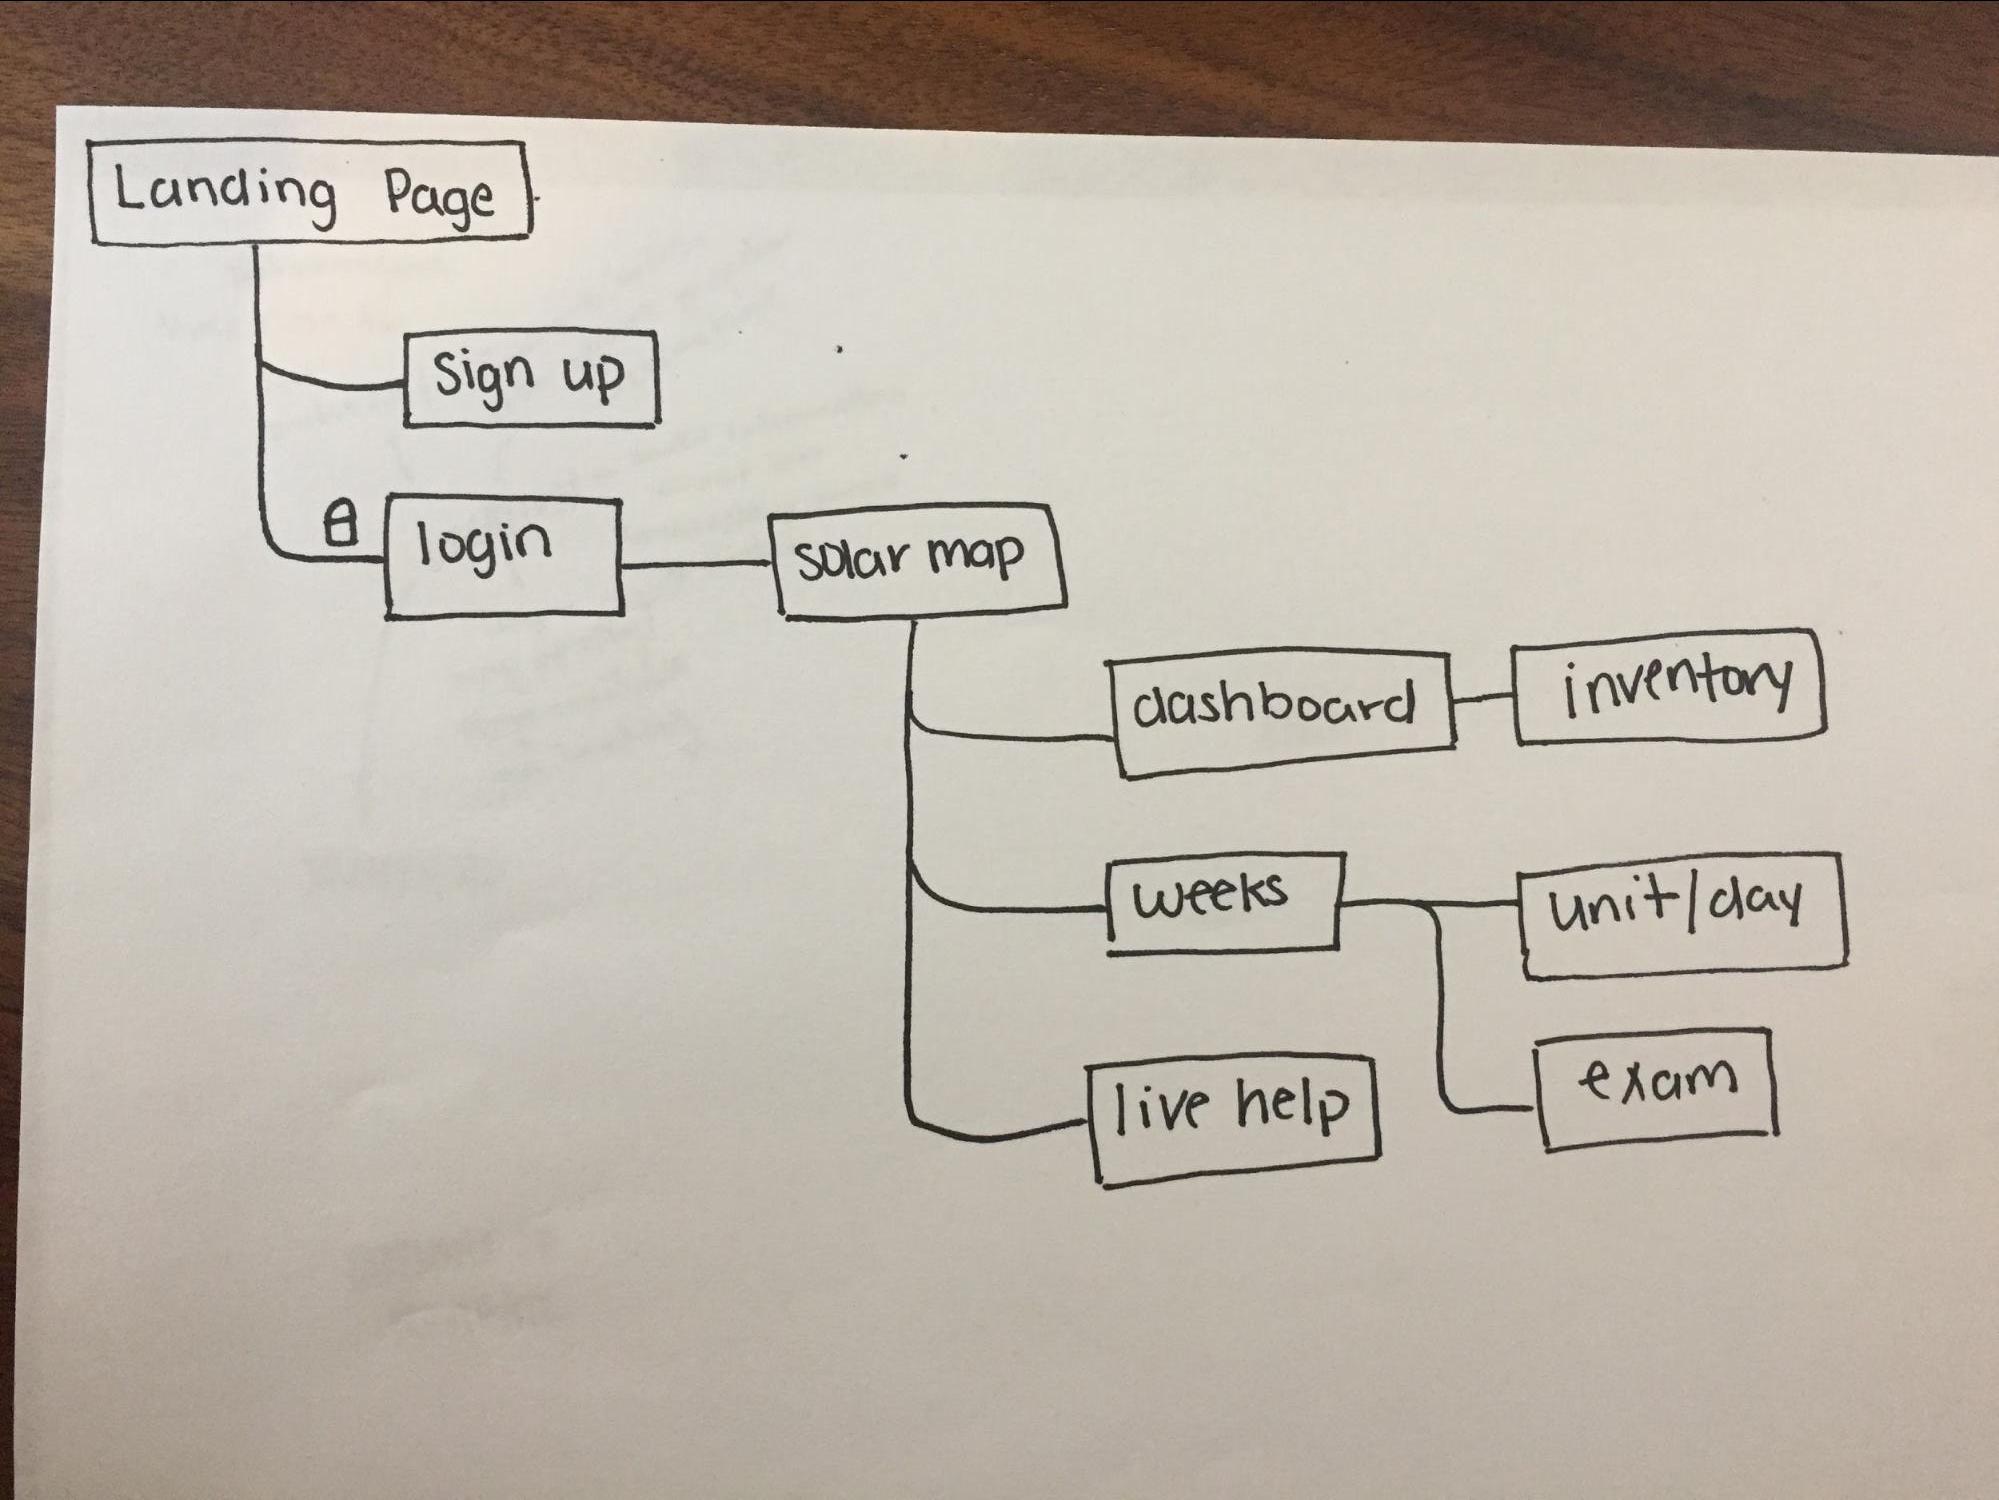 Landing Page
Sign up
login
solar map
dashboard
inventory
weeks
unit/day
live help
exam